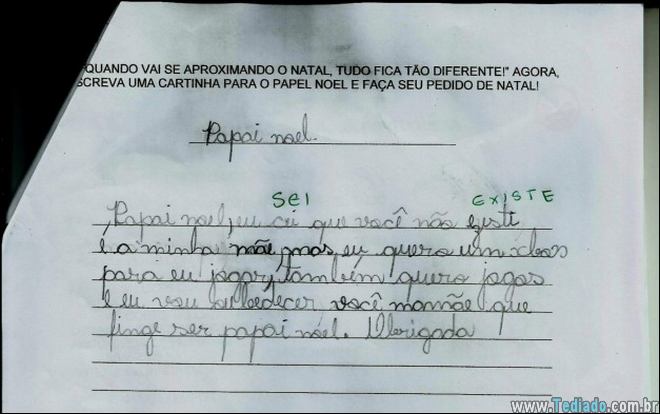 QUANDO VAI SE APROXIMANDO O NATAL, TUDO FICA TÃO DIFERENTE!" AGORA,
SCREVA UMA CARTINHA PARA O PAPEL NOEL E FAÇA SEU PEDIDO DE NATAL!
Papai noel.
SEI EXISTE
Papai noel, eu ci que você não egisti
é a minha mãe, mas eu quero um xbox
para eu jogar, também quero jogos
e eu vou obedecer você mamãe que
finge ser papai noel. Obrigada
www.Tediado.com.br